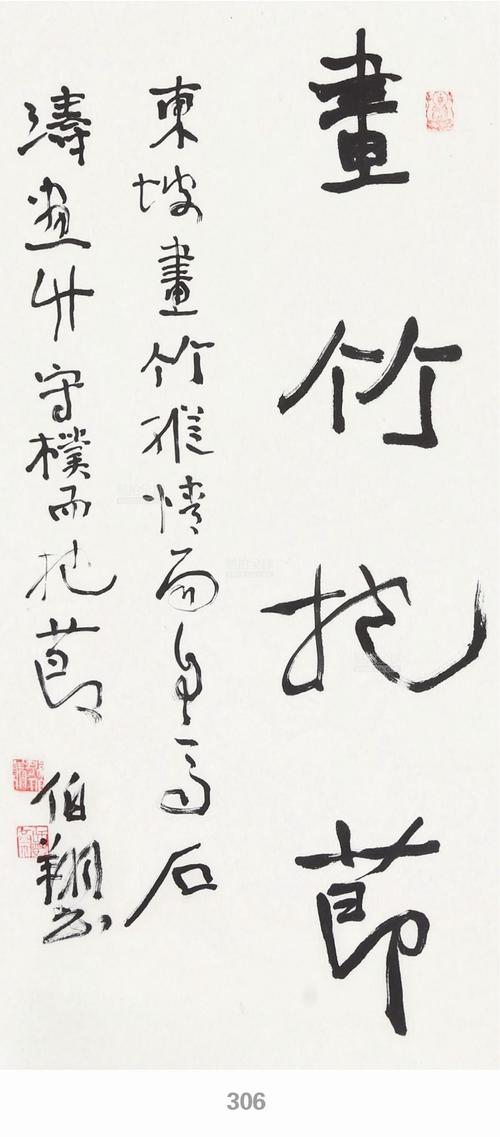 畫竹抱節
東坡畫竹縱情而高石
濤畫竹守樸而抱節 伯翔書
306